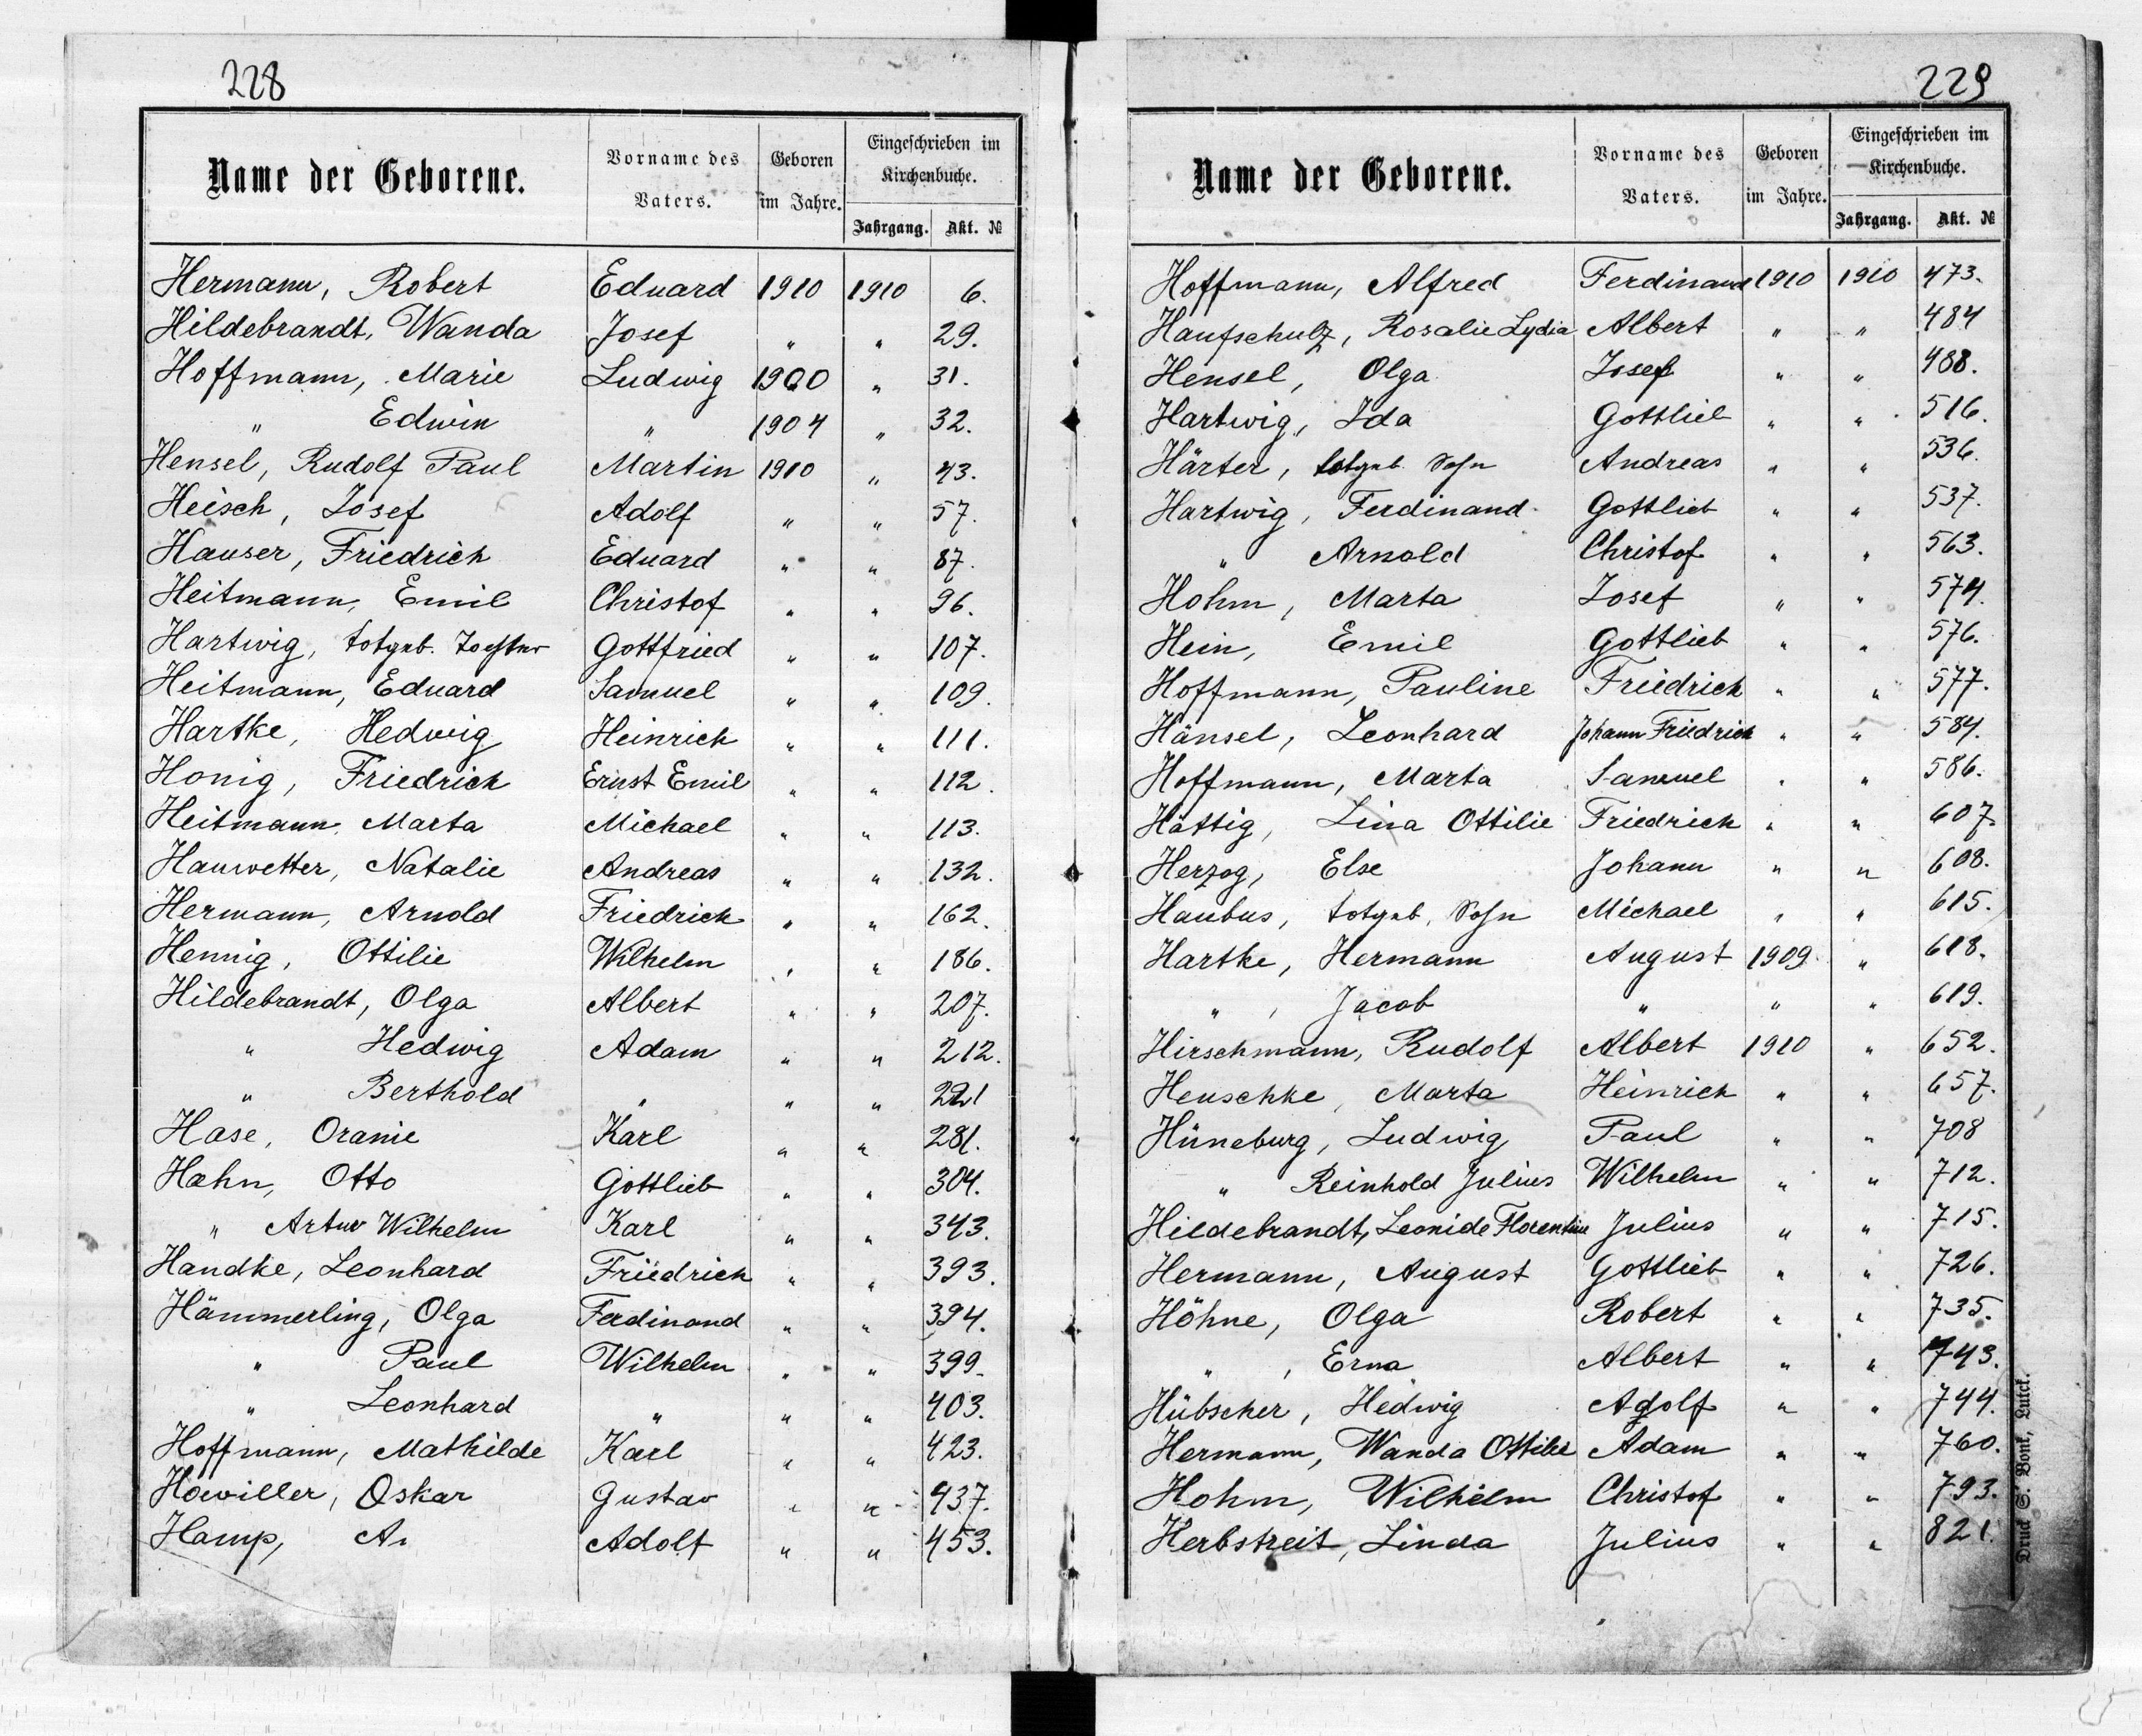 228
Name der Geborene. Vorname des Vaters. Geboren im Jahre. Eingeschrieben im Kirchenbuche. Jahrgang. Akt. №
Hermann, Robert Eduard 1910 1910 6.
Hildebrandt, Wanda Josef " " 29.
Hoffmann, Marie Ludwig 1900 " 31.
" Edwin " 1904 " 32.
Hensel, Rudolf Paul Martin 1910 " 43.
Heisch, Josef Adolf " " 57.
Hauser, Friedrich Eduard " " 87.
Heitmann, Emil Christof " " 96.
Hartwig, totgeb. Tochter Gottfried " " 107.
Heitmann, Eduard Samuel " " 109.
Hartke, Hedwig Heinrich " " 111.
Honig, Friedrich Ernst Emil " " 112.
Heitmann, Marta Michael " " 113.
Hauwetter, Natalie Andreas " " 132.
Hermann, Arnold Friedrich " " 162.
Hennig, Ottilie Wilhelm " " 186.
Hildebrandt, Olga Albert " " 207.
" Hedwig Adam " " 212.
" Berthold " " " 221
Hase, Oranie Karl " " 281.
Hahn, Otto Gottlieb " " 304.
" Artur Wilhelm Karl " " 343.
Handke, Leonhard Friedrich " " 393.
Hämmerling, Olga Ferdinand " " 394.
" Paul Wilhelm " " 399.
" Leonhard " " " 403.
Hoffmann, Mathilde Karl " " 423.
Howiller, Oskar Gustav " " 437.
Hamp, A. Adolf " " 453.
229
Name der Geborene. Vorname des Vaters. Geboren im Jahre. Eingeschrieben im Kirchenbuche. Jahrgang. Akt. №
Hoffmann, Alfred Ferdinand 1910 1910 473.
Haufschulz, Rosalie Lydia Albert " " 484
Hensel, Olga Josef " " 488.
Hartwig, Ida Gottlieb " " 516.
Härter, totgeb. Sohn Andreas " " 536.
Hartwig, Ferdinand Gottlieb " " 537.
" Arnold Christof " " 563.
Hohm, Marta Josef " " 574.
Hein, Emil Gottlieb " " 576.
Hoffmann, Pauline Friedrich " " 577.
Hänsel, Leonhard Johann Friedrich " " 584.
Hoffmann, Marta Samuel " " 586.
Hättig, Lina Ottilie Friedrich " " 607.
Herzog, Else Johann " " 608.
Haubus, totgeb. Sohn Michael " " 615.
Hartke, Hermann August 1909 " 618.
" , Jacob " " " 619.
Hirschmann, Rudolf Albert 1910 " 652.
Henschke, Marta Heinrich " " 657.
Hüneburg, Ludwig Paul " " 708
" Reinhold Julius Wilhelm " " 712.
Hildebrandt, Leonide Florentine Julius " " 715.
Hermann, August Gottlieb " " 726.
Höhne, Olga Robert " " 735.
" , Erna Albert " " 743.
Hübscher, Hedwig Adolf " " 744.
Hermann, Wanda Ottilie Adam " " 760.
Hohm, Wilhelm Christof " " 793.
Herbstreit, Linda Julius " " 821.
Druck S. Bonk, Lutck.